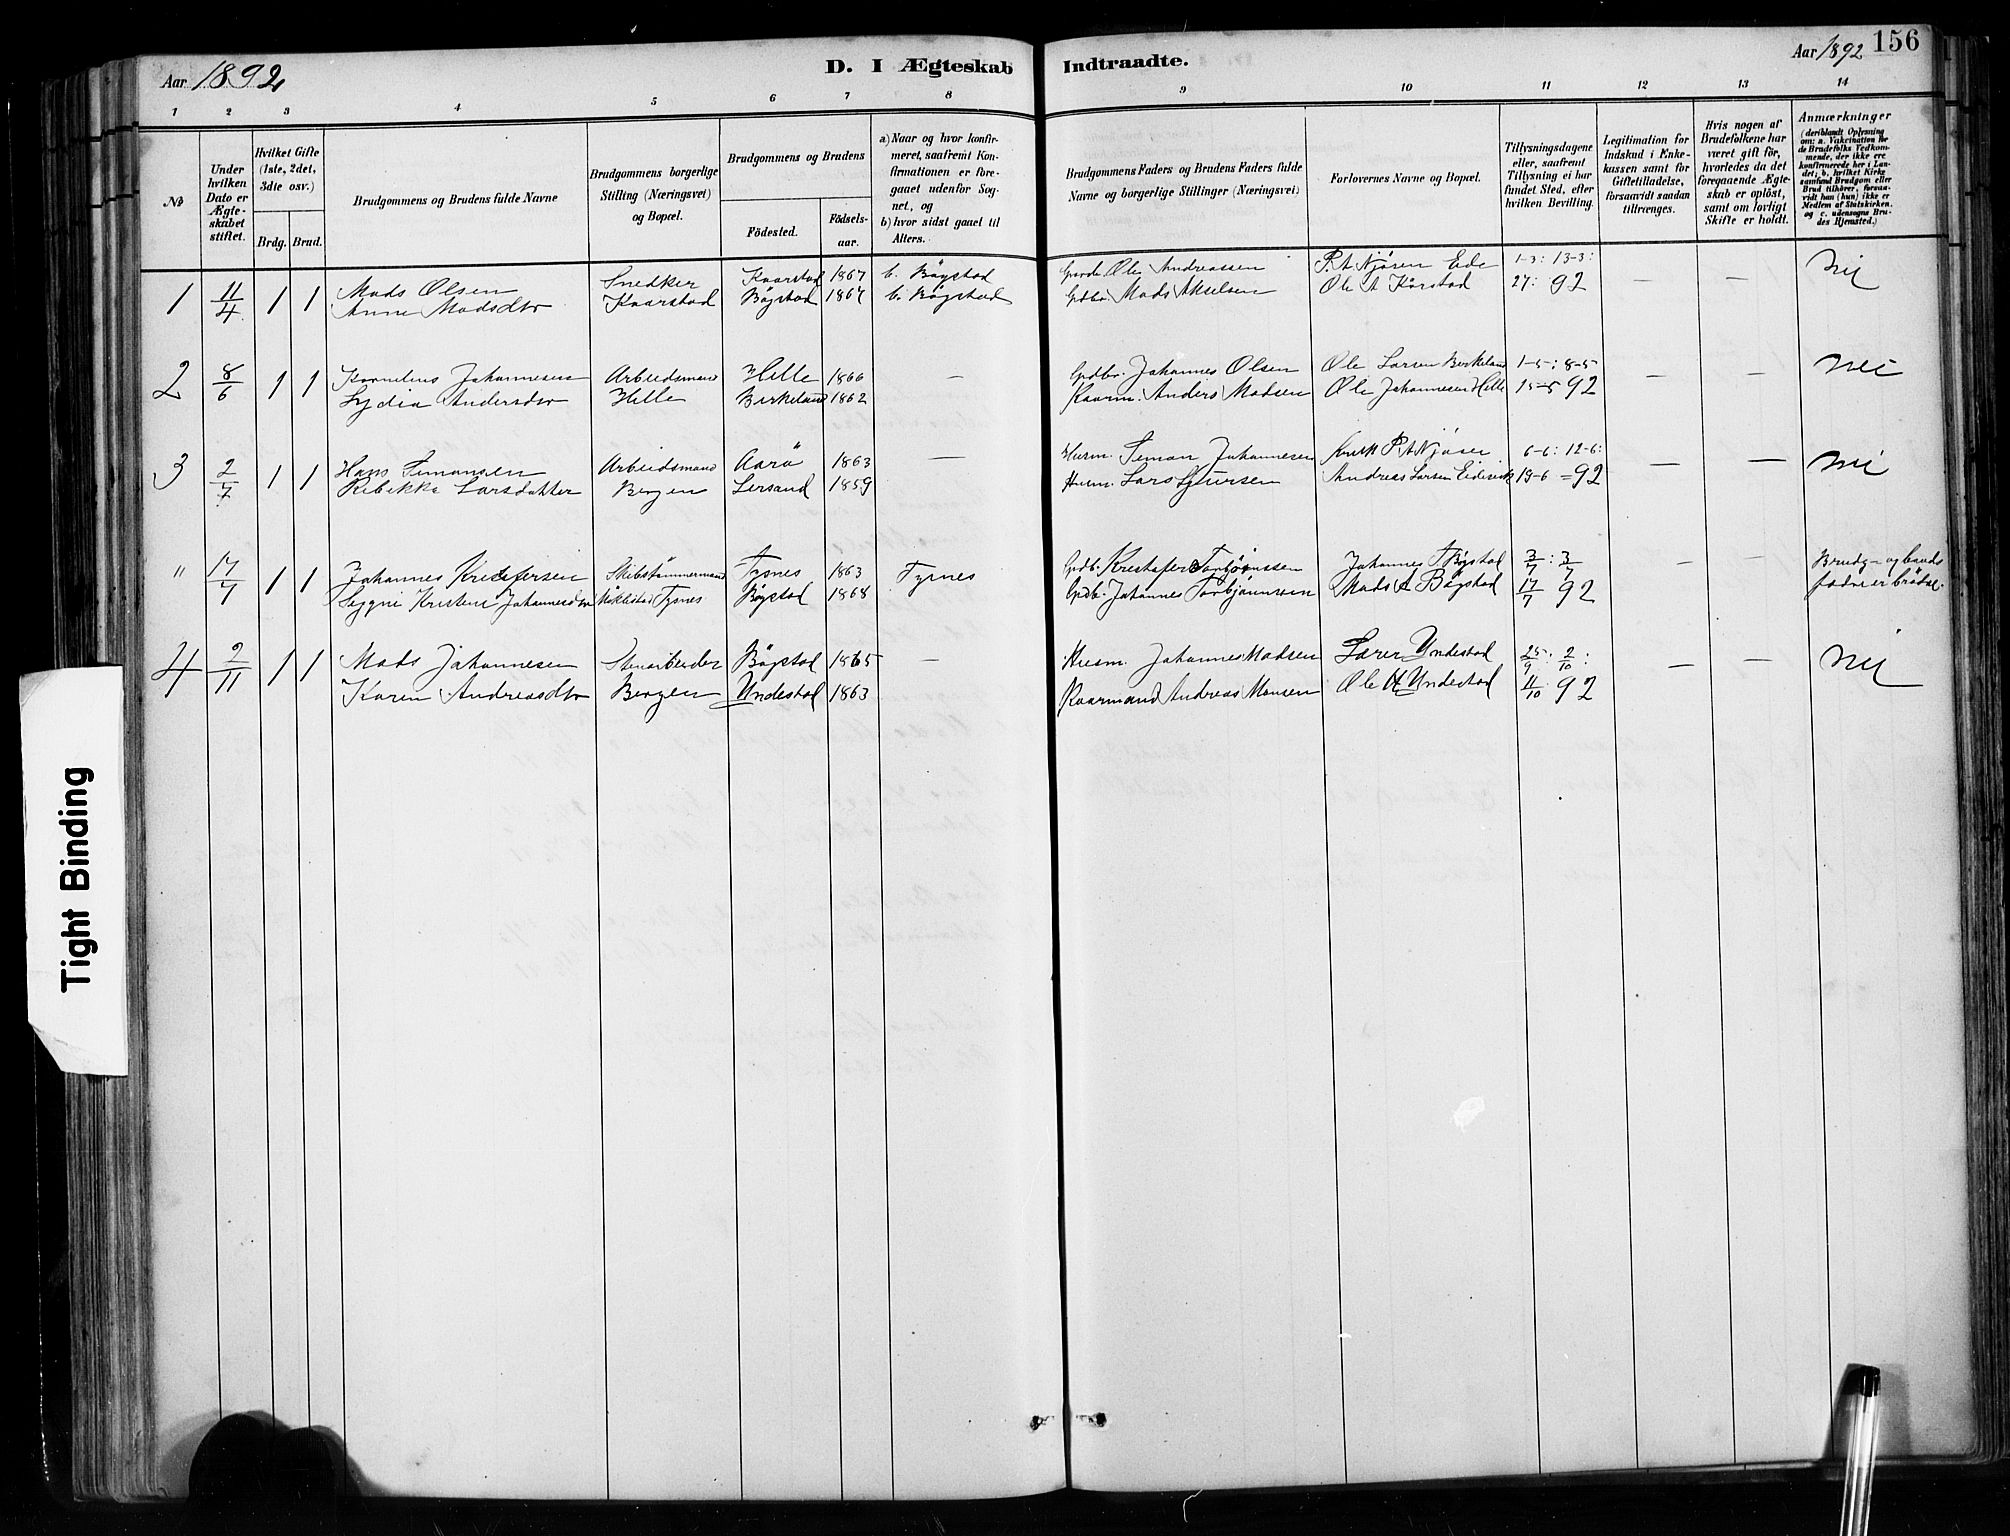 Aar 1892
D. I Ægteskab Indtraadte.
Aar 1892 156
1 2 3 4 5 6 7 8 9 10 11 12 13 14
No
Under hvilken Dato er Ægteskabet stiftet.
Hvilket Gifte (1ste, 2det, 3die osv.)
Brdg. Brud.
Brudgommens og Brudens fulde Navne
Brudgommens borgerlige Stilling (Næringsvei) og Bopæl.
Brudgommens og Brudens
Födested. Födselsaar.
a) Naar og hvor konfirmeret, saafremt Konfirmationen er foregaaet udenfor Sognet, og
b) hvor sidst gaaet til Alters.
Brudgommens Faders og Brudens Faders fulde Navne og borgerlige Stillinger (Næringsvei)
Forlovernes Navne og Bopæl.
Tillysningsdagene eller, saafremt Tillysning ei har fundet Sted, efter hvilken Bevilling.
Legitimation for Indskud i Enkekassen samt for Giftetilladelse, forsaavidt saadan tiltrænges.
Hvis nogen af Brudefolkene har været gift för, hvorledes da det foregaaende Ægteskab er oplöst, samt om lovligt Skifte er holdt.
Anmærkninger
(deriblandt Oplysning om: a. Vakcination for de Brudefolks Vedkommende, der ikke ere konfirmerede her i Landet; b. hvilket Kirkesamfund Brudgom eller Brud tilhörer, forsaavidt han (hun) ikke er Medlem af Statskirken, og c. udensogns Brudes Hjemsted.)
1 11/4 1 1 Mads Olsen Snedker Kaarstad 1867 b. Bögstad Ole Andreassen P. A Njøsen Eide 1-3: 13-3: — — nei
Anne Madsdtr Kaarstad Bögstad 1867 b. Bögstad Gdbr. Mads Akselsen Ole A Kårstad 27: 92
2 8/6 1 1 Kornelius Johannesen Arbeidsmand Hille 1866 — Gdbr. Johannes Olsen Ole Larsen Birkeland 1-5: 8-5 — — nei
Lydia Andersdtr Hille Birkeland 1862 Kaarm. Anders Madsen Ole Johannesen Hille 15-5 92
3 2/7 1 1 Hans Simonsen Arbeidsmand Aarö 1863 — Husm. Simon Johannesen P. A Njøsen 6-6: 12-6: — — nei
Ribekka Larsdatter Bergen Lersand 1859 Husm. Lars Sjursen Andreas Larsen 19-6 =92
" 17/7 1 1 Johannes Kristofersen Skibstömmermand Tysnes 1863 Tysnes Gdb. Kristofer Torbjörnssen Johannes T Bögstad 3/7: 3/7 — — Brudg- og bruds
Kristine Johannesdtr Tysnes Bögstad 1868 Gdb. Johannes Torbjörnssen Mads A Bögstad 17/7 92 fædre er brödre.
4 2/11 1 1 Mads Johannesen Stenarbeider Bögstad 1865 — Husm. Johannes Madsen Lærer Yndestad 25/9: 2/10: — — nei
Karen Andreasdtr Bergen Yndestad 1863 Kaarmand Andreas Monsen Ole A Yndestad 11/10 92
Tight Binding